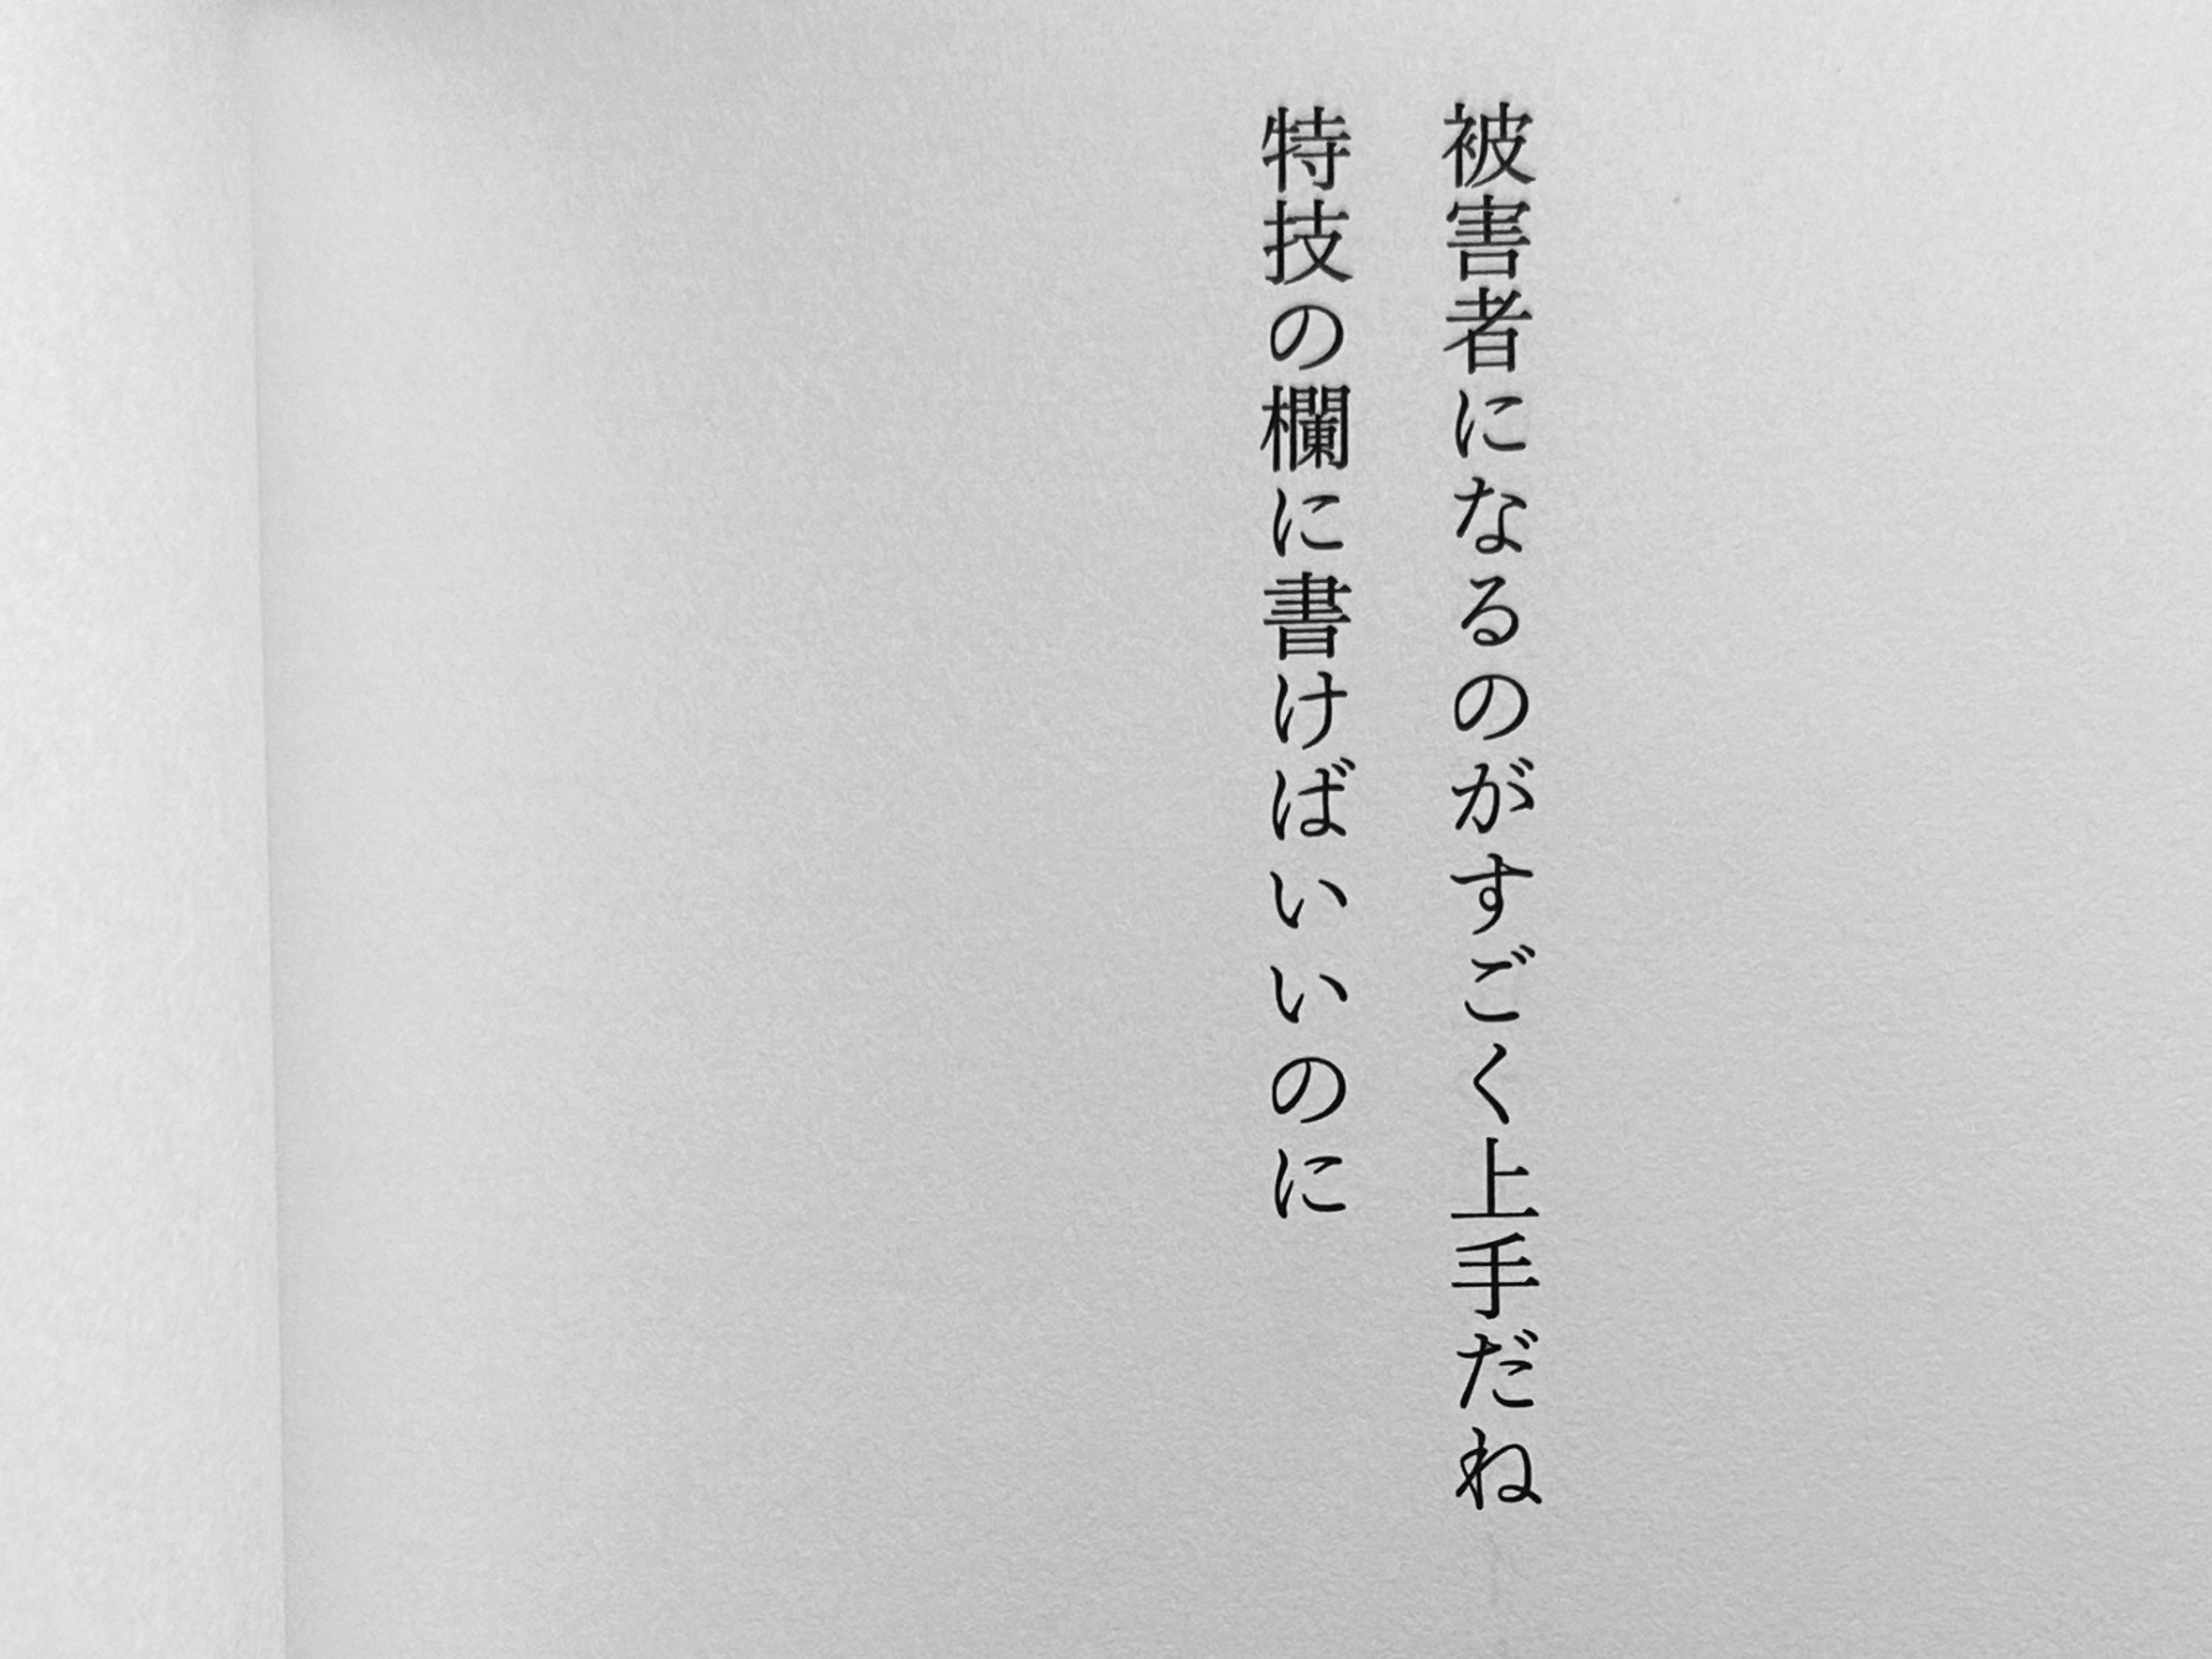 被害者になるのがすごく上手だね
特技の欄に書けばいいのに